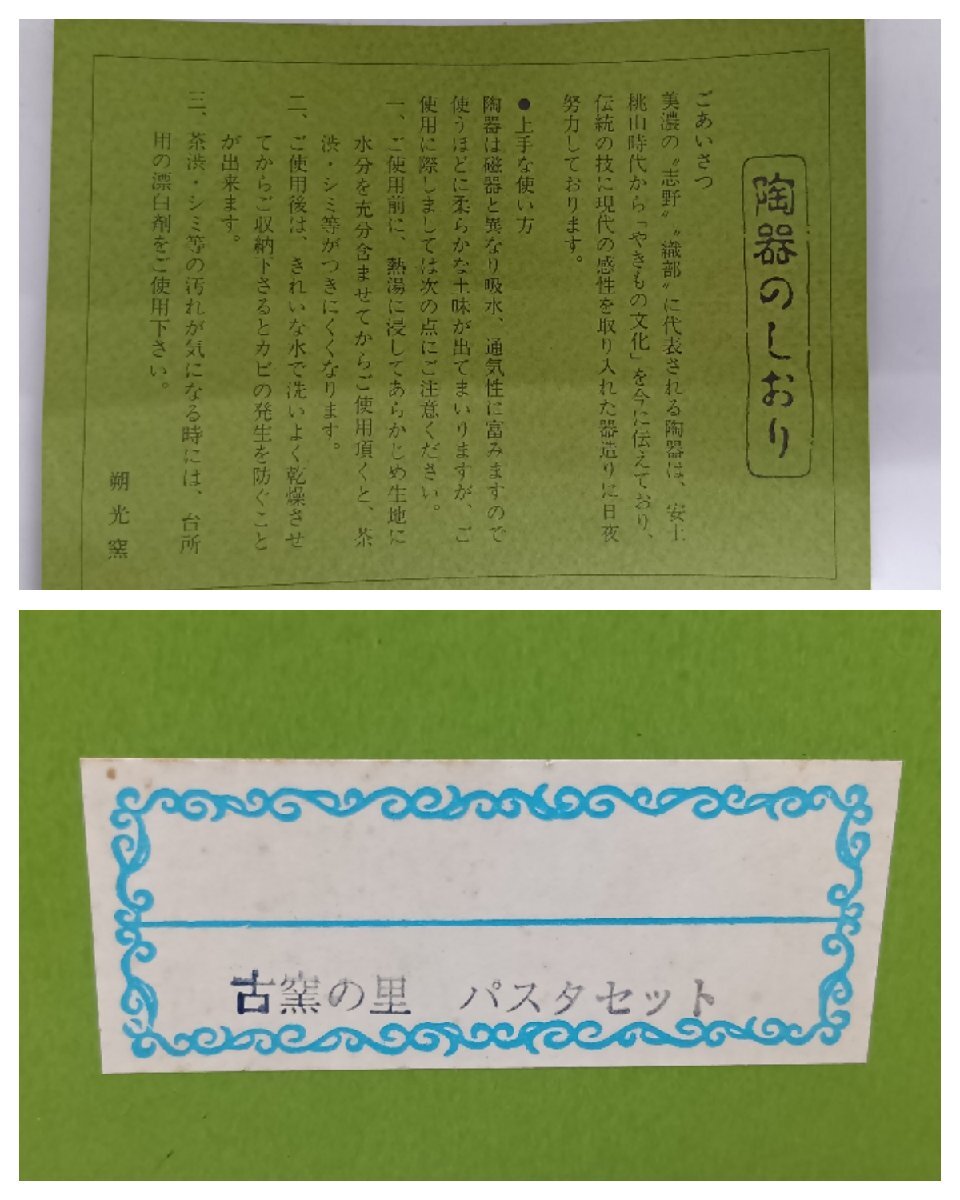 陶器のしおり
ごあいさつ
美濃の〝志野〟〝織部〟に代表される陶器は、安土
桃山時代から「やきもの文化」を今に伝えており、
伝統の技に現代の感性を取り入れた器造りに日夜
努力しております。
●上手な使い方
陶器は磁器と異なり吸水、通気性に富みますので
使うほどに柔らかな土味が出てまいりますが、ご
使用に際しましては次の点にご注意ください。
一、ご使用前に、熱湯に浸してあらかじめ生地に
水分を充分含ませてからご使用頂くと、茶
渋・シミ等がつきにくくなります。
二、ご使用後は、きれいな水で洗いよく乾燥させ
てからご収納下さるとカビの発生を防ぐこと
が出来ます。
三、茶渋・シミ等の汚れが気になる時には、台所
用の漂白剤をご使用下さい。
朔光窯
古窯の里 パスタセット